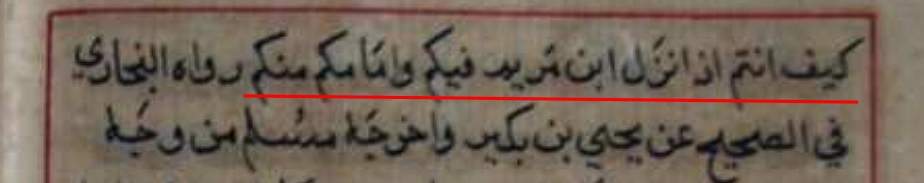 كيف انتم اذ انزل ابن مريم فيكم وامامكم منكم رواه البخاري
في الصحيح عن يحيي بن بكير واخرجه مسلم من وجه